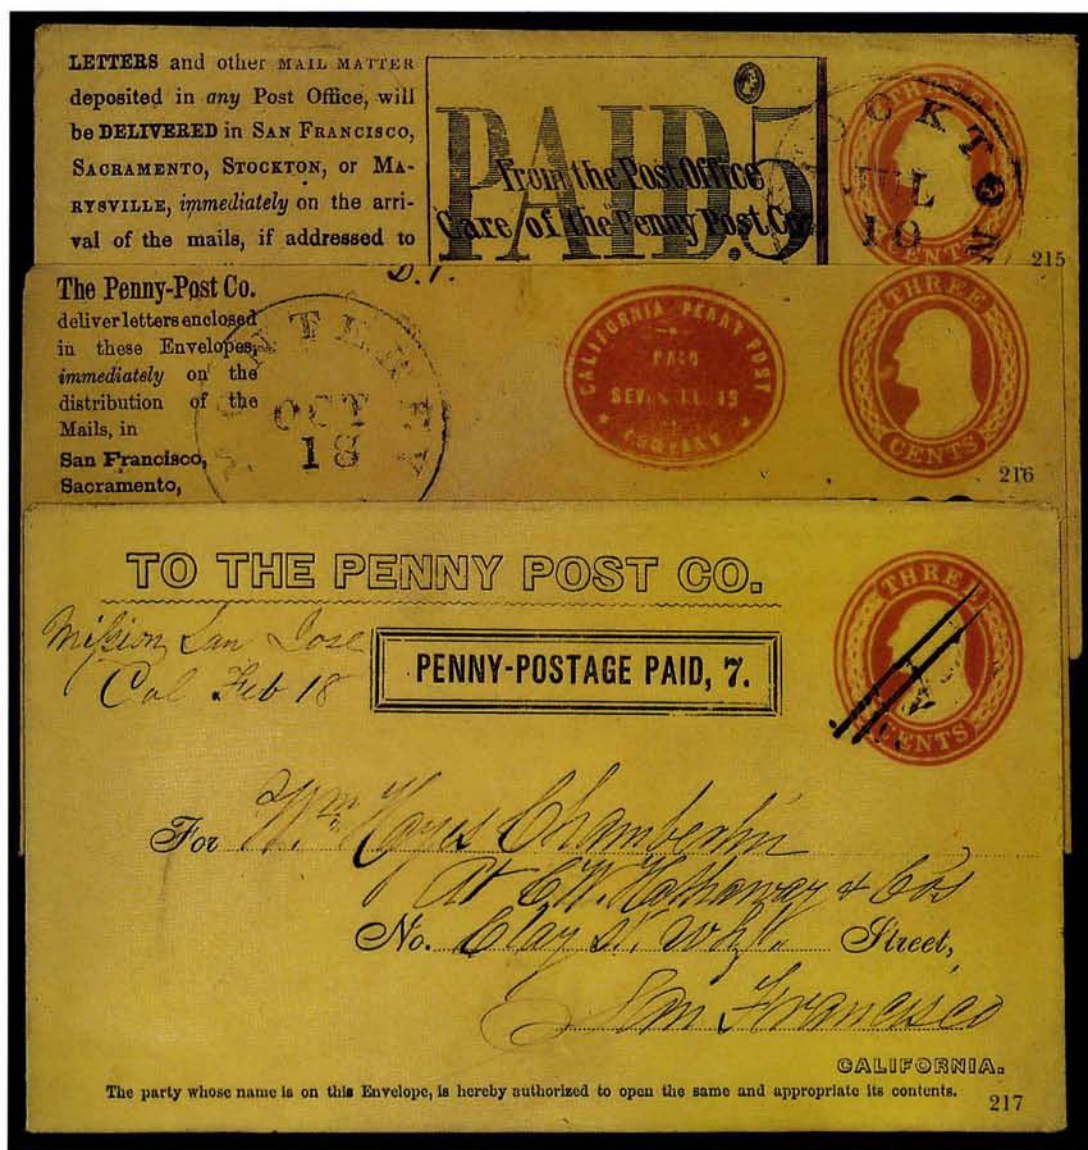 LETTERS and other MAIL MATTER
deposited in any Post Office, will
be DELIVERED in SAN FRANCISCO,
SACRAMENTO, STOCKTON, or MA-
RYSVILLE, immediately on the arri-
val of the mails, if addressed to
PAID.5
From the Post Office
Care of the Penny Post Co.
THREE
CENTS
OCKTON
JUL
10
215
The Penny-Post Co.
deliver letters enclosed
in these Envelopes,
immediately on the
distribution of the
Mails, in
San Francisco,
Sacramento,
OCT
18
CALIFORNIA PENNY POST
PAID
COMPANY
THREE
CENTS
216
TO THE PENNY POST CO.
Mission San Jose
Cal Feb 18
PENNY-POSTAGE PAID, 7.
THREE
CENTS
For Wm Hayes Chamberlin
At C.W. Hathaway & Cos
No. Clay St. Whf. Street,
San Francisco
CALIFORNIA.
The party whose name is on this Envelope, is hereby authorized to open the same and appropriate its contents.
217